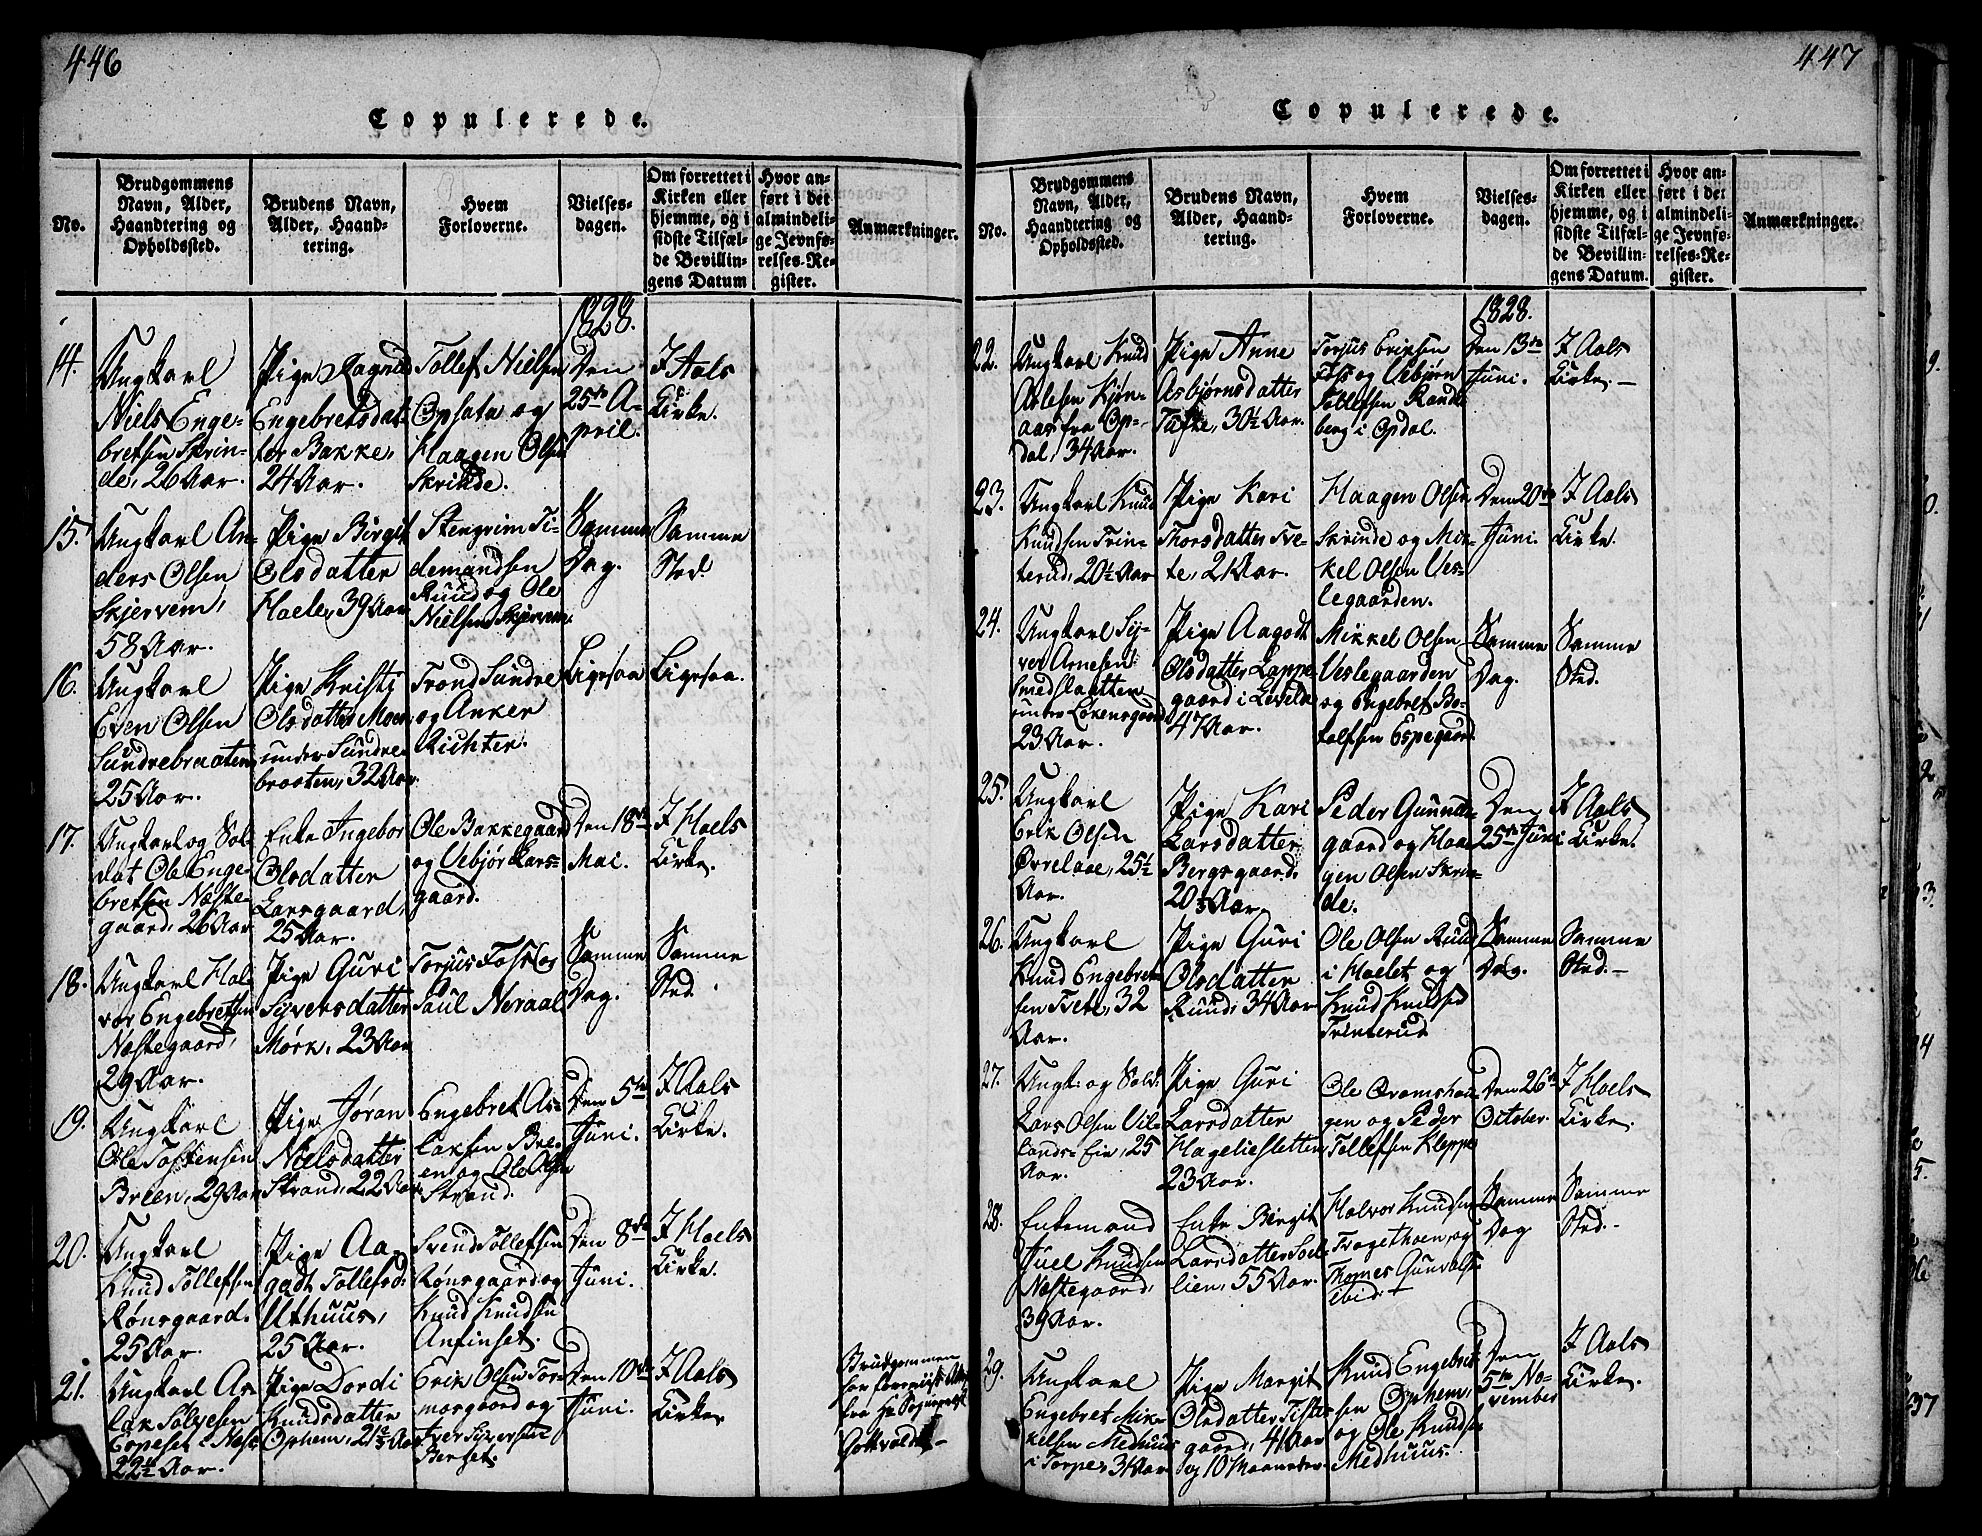 446
Copulerede.
No.
Brudgommens Navn, Alder, Haandtering og Opholdssted.
Brudens Navn, Alder, Haandtering.
Hvem Forloverne.
Vielsesdagen.
Om forrettet i Kirken eller hjemme, og i sidste Tilfælde Bevillingens Datum
Hvor anført i det almindelige Jevnførelses-Register.
Anmærkninger.
1828.
14.
Ungkarl
Niels Enge-
bretsen Skrin-
de, 26 Aar.
Pige Ragnild
Engebretsdat-
ter Bakke,
24 Aar.
Tollef Nielsen
Opsata og
Haagen Olsen
Skrinde.
Den
25de A-
pril.
I Aals
Kirke.
15.
Ungkarl An-
ders Olsen
Skjervem,
58 Aar.
Pige Birgit
Olsdatter
Hoele, 39 Aar
Stengrim Ti-
demandsen
Ruud og Ole
Nielsen Skjervem.
Samme
Dag.
Samme
Sted.
16.
Ungkarl
Even Olsen
Sundrebraaten
25 Aar.
Pige Kristj
Olsdatter Moen
under Sundre-
braaten, 32 Aar.
Trond Sundre
og Anker
Richter.
Ligesaa
Ligesaa.
17.
Ungkarl og Sol-
dat Ole Enge-
bretsen Næste-
gaard, 26 Aar
Enke Ingebor
Olsdatter
Larsgaard,
25 Aar.
Ole Bakkegaard
og Uebjør Lars-
gaard.
Den 18de
Mai.
I Hoels
Kirke.
18.
Ungkarl Hal-
vor Engebretsen
Næstegaard,
29 Aar.
Pige Guri
Syversdatter
Mørk, 23 Aar
Torjus Foss og
Paul Noraal
Samme
Dag.
Samme
Sted.
19.
Ungkarl
Ole Tostensen
Breen, 29 Aar
Pige Jøran
Nielsdatter
Strand, 22 Aar
Engebret As-
laksen Bre-
en og Ole Olsen
Strand.
Den 5te
Juni.
I Aals
Kirke.
20.
Ungkarl
Knud Tollefsen
Rønsgaard.
25 Aar.
Pige Aa-
gadt Tollefsd:
Uthuus,
25 Aar.
Svend Tollefsen
Rønsgaard og
Knud Knudsen
Anfinset.
Den 8de
Juni.
I Hoels
Kirke.
21.
Ungkarl As-
lak Sølvesen
22½ Aar.
Pige Dordi
Knudsdatter
Opheim, 21
Erik Olsen Tor-
morgaard og
Iver Syversen
Berset.
Den 10de
Juni.
I Aals
Kirke
Brudgommen
har foreviist
fra
447
Copulerede.
No.
Brudgommens Navn, Alder, Haandtering og Opholdssted.
Brudens Navn, Alder, Haandtering.
Hvem Forloverne.
Vielsesdagen.
Om forrettet i Kirken eller hjemme, og i sidste Tilfælde Bevillingens Datum.
Hvor anført i det almindelige Jevnførelses-Register.
Anmærkninger.
1828.
22.
Ungkarl Knud
Aslesen Kjøn-
aas fra Op-
dal, 34 Aar.
Pige Anne
Asbjørnsdatter
Tufte, 30½ Aar.
Torjus Eriksen
Foss og Uebjørn
Tollefsen Rand
berg i Opdal.
Den 13de
Juni.
I Aals
Kirke.
23.
Ungkarl Knud
Knudsen Trin-
terud, 20½ Aar
Pige Kari
Thorsdatter Tve-
te, 21 Aar.
Haagen Olsen
Skrinde og Mik-
kel Olsen Ves-
legaarden.
Den 20de
Juni.
I Aals
Kirke.
24.
Ungkarl Sy-
ver Arnesen
Smedslaatten
under Løkensgaard
23 Aar.
Pige Aagodt
Olsdatter Lappe-
gaard i
47 Aar.
Mikkel Olsen
Veslegaarden
og Engebret Bo-
tolfsen Espegaard
Samme
Dag.
Samme
Sted.
25.
Ungkarl
Erik Olsen
Øvrelaae, 25½
Aar.
Pige Kari
Larsdatter
Bergsgaard.
20⅓ Aar.
Peder Gunnul-
gaard og Haa-
gen Olsen Skrin-
de.
Den
25de Juni
I Aals
Kirke.
26.
Ungkarl
Knud Engebret-
sen Tvete, 32
Aar.
Pige Guri
Olsdatter
Ruud, 34 Aar
Ole Olsen Ruud
i Hoelet og
Knud Knudsen
Trinterud
Samme
Dag.
Samme
Sted.
27.
Ungk: og Sold:
Lars Olsen Vil-
lands-Eie, 25
Aar.
Pige Guri
Larsdatter
Hagelisletten
23 Aar.
Ole Opramshau-
gen og Peder
Tollefsen Kleppe
Den 26de
October
I Hoels
Kirke.
28.
Enkemand
Juel Knudsen
Næstegaard,
39 Aar.
Enke Birgit
Larsdatter Soel-
lien, 55 Aar.
Halvor Knudsen
Trogethoen, og
Thomes Gunvalds:
ibid:
Samme
Dag
Samme
Sted.
29.
Ungkarl
Engebret Mik-
kelsen Medhuus
i Torpe, 31 Aar
Pige Margit
Olsdatter Tister-
gaard, 41 Aar
og 10 Maaneder.
Knud Engebret-
sen Opheim,
og Ole Knudsen
Medhuus.
Den
5te No-
vember
I Aals
Kirke.